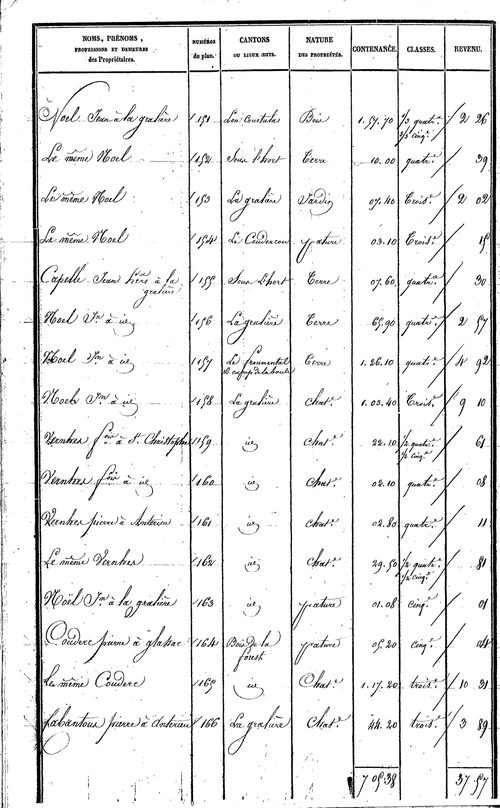 NOMS, PRÉNOMS, PROFESSIONS ET DEMEURES des Propriétaires. NUMÉROS du plan. CANTONS OU LIEUX DITS. NATURE DES PROPRIÉTÉS. CONTENANCE. CLASSES. REVENU.
Noel Jean à la gralière 151 Lou Bois 1.57.70 1/2 quatr.e 1/2 cinq.e 2 26
Le même Noel 152 Sous l'hort Terre 10.00 quatr.e 39
Le même Noel 153 La gralière Jardin 07.40 Trois.e 2 02
Le même Noel 154 Le Coudercou pature 03.10 Trois.e 15
Capelle Jean à la gralière 155 Sous l'hort Terre 07.60 quatr.e 30
Noel Jn à id 156 La gralière Terre 65.90 quatr.e 2 57
Noel Jn à id 157 Le froumental et camp de la boule Terre 1.26.10 quatr.e 4 92
Noel Jn à id 158 La gralière Chat.r 1.03.40 Trois.e 9 10
Vernhes f.ois à St. Christophe 159 id Chat.r 22.10 1/2 quatr.e 1/2 cinq.e 61
Vernhes f.ois à id 160 id Chat.r 02.10 quatr.e 08
Vernhes pierre à Anterieu 161 id Chat.r 02.80 quatr.e 11
Le même Vernhes 162 id Chat.r 29.50 1/2 quatr.e 1/2 cinq.e 81
Noel Jn à la gralière 163 id pature 01.08 cinq.e 01
Couderc pierre à glassac 164 Bois de la forest pature 05.20 cinq.e 04
Le même Couderc 165 id Chat.r 1.17.20 trois.e 10 31
Labantous pierre à Anterieu 166 La gralière Chat.r 44.20 trois.e 3 89
7 05.38 37.57